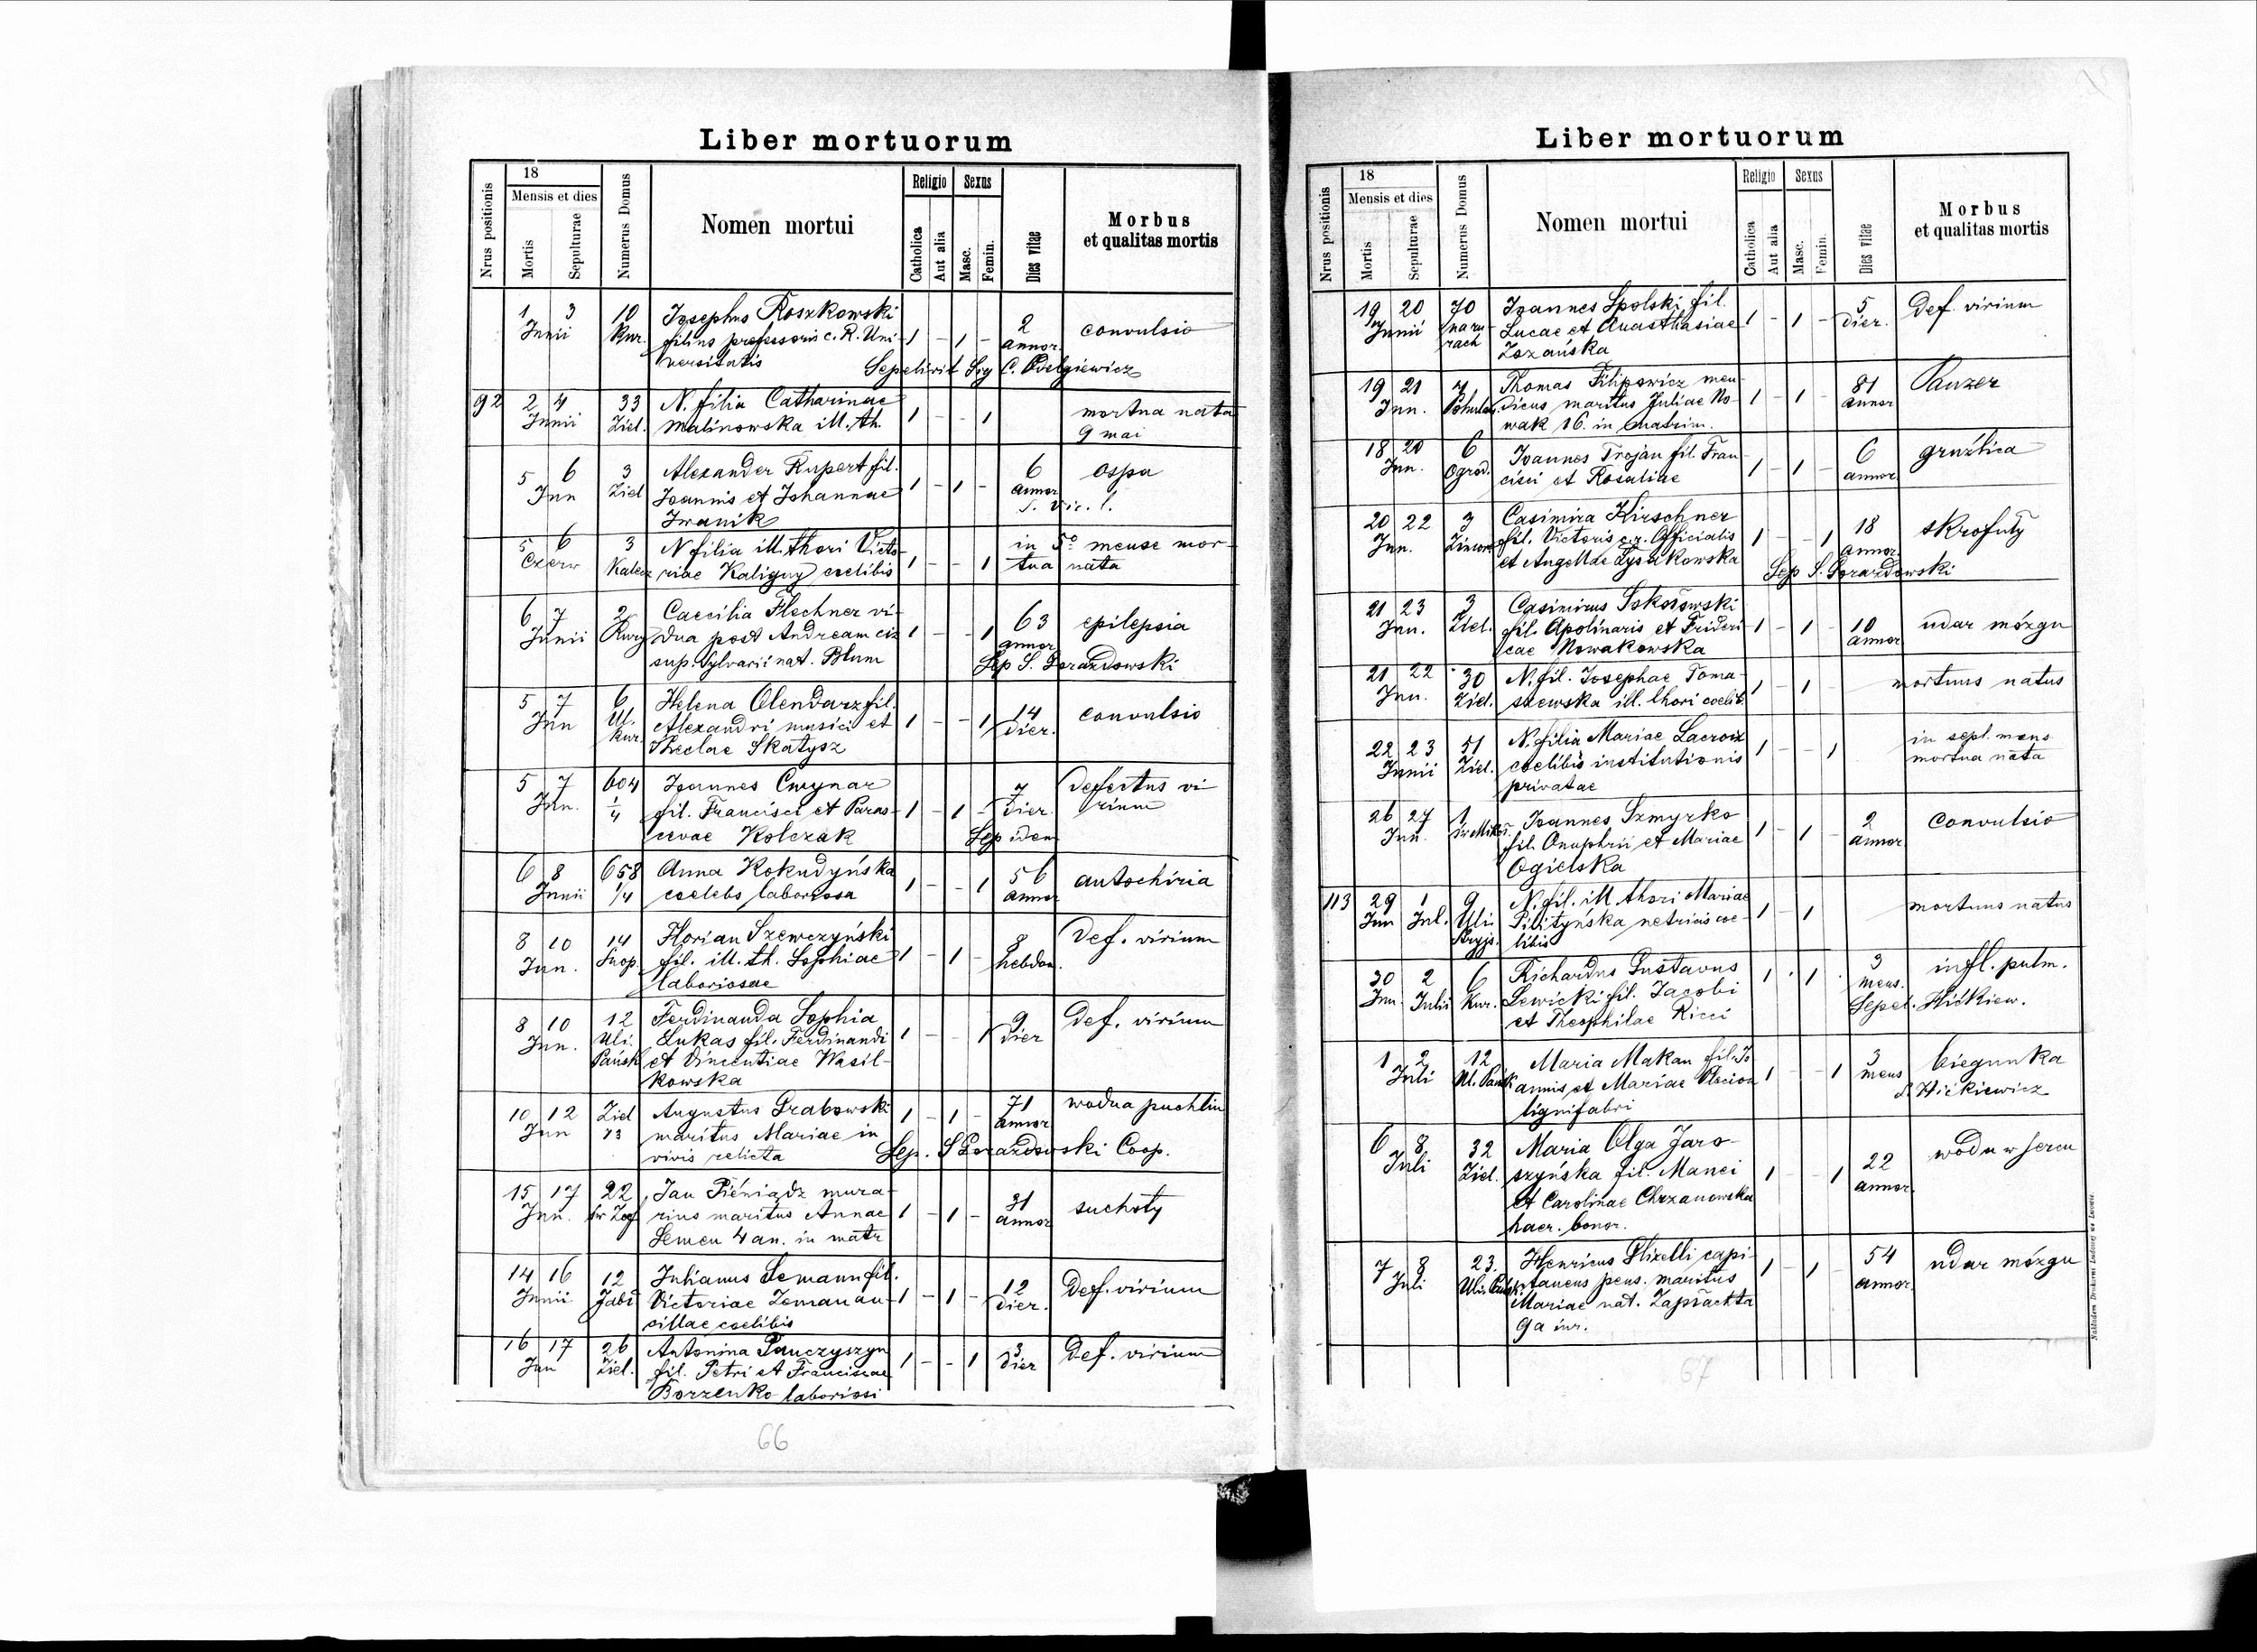 Liber mortuorum
Nrus positionis
18
Mensis et dies
Mortis
Sepulturae
Numerus Domus
Nomen mortui
Religio
Catholica
Aut alia
Sexus
Masc.
Femin.
Dies vitae
Morbus
et qualitas mortis
1 3 10 Josephus Roszkowski
Junii Kur. filius professoris c. R. Uni- 1 - 1 - 2 annor. convulsio
versitatis Sepelivit
92 2 4 33 N. filia Catharinae mortua nata
Junii Ziel. Malinowska ill. th. 1 - - 1 9 mai
5 6 3 Alexander Rupert fil. 6 ospa
Jun Ziel Joannis et Johannae 1 - 1 - annor
Iwanik
5 6 3 N filia ill. thori Victo- in 5º mense mor-
Czerw riae Kaliguy coelibis 1 - - 1 tua nata
6 7 2 Caecilia Flechner vi- 63 epilepsia
Junii dua post Andream 1 - - 1 annor
sup. Sylvarii nat. Blum Sep S. Gorazdowski
5 7 6 Helena Olendarz fil. 14 convulsio
Jun Ul. Kur. Alexandri musici et 1 - - 1 dier.
Theclae Skałysz
5 7 604 Joannes Cwynar 7 defectus vi-
Jun. 1/4 fil. Francisci et Paras- 1 - 1 - dier. rium
cevae Kolczak Sep idem
6 8 658 Anna Kokudyńska 56 autochiria
Junii 1/4 coelebs laboriosa 1 - - 1 annor
8 10 14 Florian Szewczyński 8 Def. virium
Jun. Snop. fil. ill. th. Sophiae 1 - 1 - hebdom.
laboriosae
8 10 12 Ferdinanda Sophia 9 def. virium
Jun. Uli. Pańsk Lukas fil. Ferdinandi 1 - - 1 dier
et Vincentiae Wasil-
kowska
10 12 Ziel Augustus Grabowski 71 wodna puchlin
Jun 13 maritus Mariae in 1 - 1 - annor
vivis relicta Sep. S Gorazdowski Coop.
15 17 22 Jan Pieniądz mura- 31 suchoty
Jun. św Zof rius maritus Annae 1 - 1 - annor
Semen 4 an. in matr
14 16 12 Julianus Semann fil. 12 def. virium
Junii Jabł Victoriae Zeman an- 1 - 1 - dier.
cillae coelibis
16 17 26 Antonina Panczyszyn 3 def. virium
Jun Ziel. fil. Petri et Franciscae 1 - - 1 dier
Borzenko laboriosi
66
Liber mortuorum
Nrus positionis
18
Mensis et dies
Mortis
Sepulturae
Numerus Domus
Nomen mortui
Religio
Catholica
Aut alia
Sexus
Masc.
Femin.
Dies vitae
Morbus
et qualitas mortis
19 20 70 Joannes Spolski fil. 5 Def. virium
Junii Lucae et Anasthasiae 1 - 1 - dier.
Zozańska
19 21 7 Thomas Filipowicz men- 81 Panzer
Jun. dicus maritus Juliae No- 1 - 1 - annor
wak 16. in matrim.
18 20 6 Joannes Trojan fil. Fran- 6 gruźlica
Jun. Ogrod. cisci et Rosaliae 1 - 1 - annor
20 22 3 Casimira Kirschner 18 skrofuły
Jun. fil. Victoris c.r. Officialis 1 - - 1 annor
et Angellae Łysakowska Sep S. Gorazdowski
21 23 3 Casimirus Sokołowski 10 udar mózgu
Jun. Ziel. fil. Apolinaris et Frideri- 1 - 1 - annor
cae Nowakowska
21 22 30 N. fil. Josephae Toma- mortuus natus
Jun. Ziel. szewska ill. thori coelib. 1 - 1 -
22 23 51 N. filia Mariae Lacroix in sept. mens
Junii Ziel. coelibis institutionis 1 - - 1 mortua nata
privatae
26 27 1 Joannes Szmyrko 2 convulsio
Jun. św Mikoł. fil. Onuphrii et Mariae 1 - 1 - annor
Ogielska
113 29 1 9 N. fil. ill. thori Mariae mortuus natus
Jun Jul. Uli Stryjs. Pilityńska netricis coe- 1 - 1
libis
30 2 6 Richardus Gustavus 3 infl. pulm.
Jun. Julii Kur. Lewicki fil. Jacobi 1 - 1 - mens.
et Theophilae Ricci Sepel. Hićkiew.
1 2 12 Maria Makan fil. Jo- 3 biegunka
Juli Ul. Pańsk annis et Mariae 1 - - 1 mens
lignifabri S Hićkiewicz
6 8 32 Maria Olga Jaro- 22 woda w sercu
Juli Ziel. szyńska fil. Manci 1 - - 1 annor.
et Carolinae Chrzanowska
haer. bonor.
7 8 23. Henricus Glixelli capi- 54 udar mózgu
Juli Uli. Pańsk. taneus pens. maritus 1 - 1 annor.
Mariae nat. Zapłachta
9a inr.
67
Nakładem Drukarni Ludowej we Lwowie.